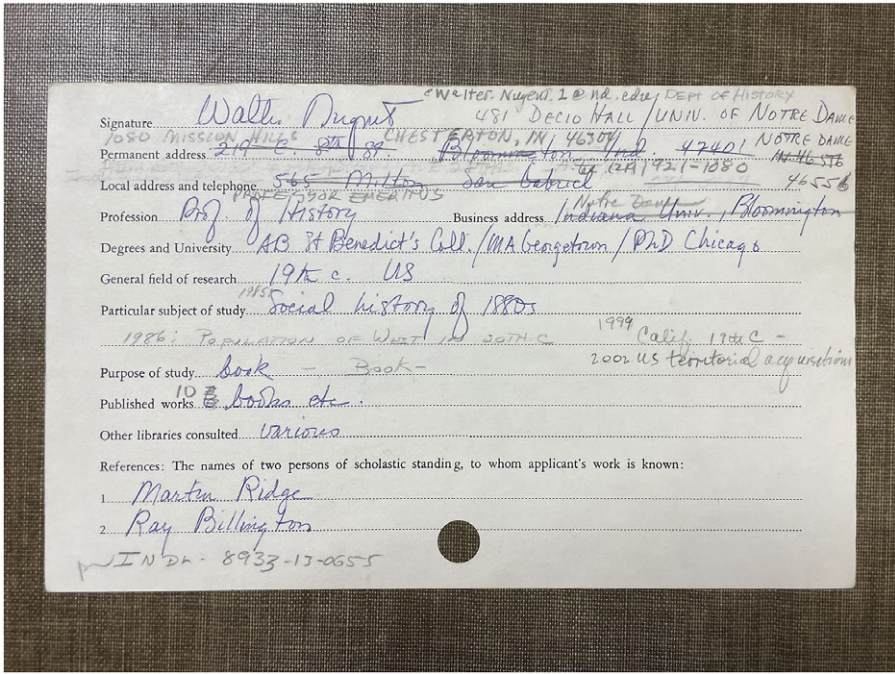 eWalter.Nugent.1@nd.edu/ DEPT OF HISTORY
Signature Walter Nugent 481 DECIO HALL/UNIV. OF NOTRE DAME
1080 MISSION HILLS CHESTERTON, IN 46304 NOTRE DAME
Permanent address 219 E. 8th St. Bloomington Ind 47401 IN 46556
(219) 921-1080
Local address and telephone 565 Milton San Gabriel 46556
PROFESSOR EMERITUS Notre Dame
Profession Prof. of History Business address Indiana Univ., Bloomington
Degrees and University AB St Benedict's Coll./MA Georgetown/PhD Chicago
General field of research 19th c. US
Particular subject of study 1985: Social history of 1880s
1986: POPULATION OF WEST IN 20TH C 1999 Calif. 19th C -
2002 US territorial acquisitions
Purpose of study book - Book -
Published works 10 books etc.
Other libraries consulted various
References: The names of two persons of scholastic standing, to whom applicant's work is known:
1 Martin Ridge
2 Ray Billington
INDL - 8933-13-0655